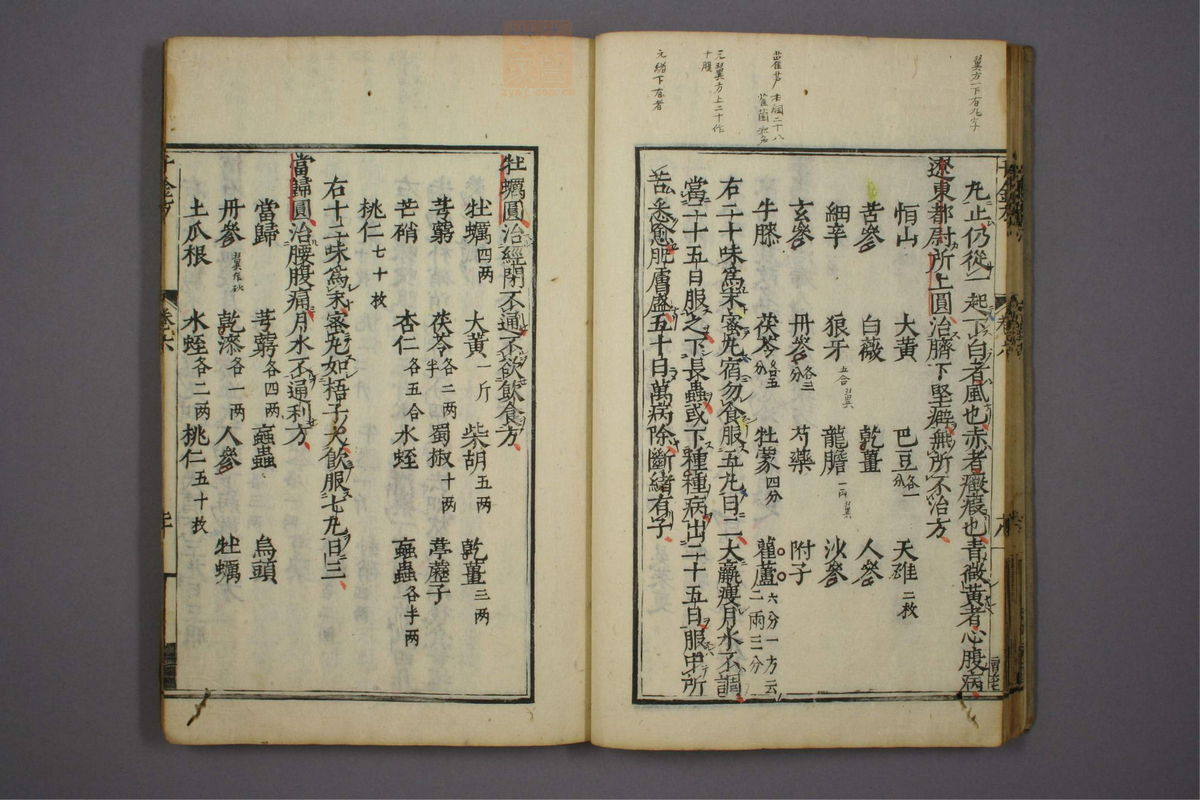 翼方一下有九字
雚芦 本綱二十八
雚菌
元翼方上二十作
十服
元緒下有者
丸止仍從一起下白者風也赤者癥瘕也青微黃者心腹病
遼東都尉所上圓治臍下堅癖無所不治方
恒山 大黃 巴豆各一分 天雄二枚
苦參 白薇 乾薑 人參
細辛 狼牙 龍膽 沙參
玄參 丹參各三分 芍藥 附子
牛膝 茯苓各五分 牡蒙四分 雚蘆六分一方云二兩三分
右二十味為末蜜丸宿勿食服五丸日三大羸瘦月水不調
當二十五日服之下長蟲或下種種病出二十五日服中所
苦悉愈肌膚盛五十日萬病除斷緒有子
牡蠣圓治經閉不通不欲飲食方
牡蠣四兩 大黃一斤 柴胡五兩 乾薑三兩
芎藭 茯苓各二兩半 蜀椒十兩 葶藶子
芒硝 杏仁各五合 水蛭 蝱蟲各半兩
桃仁七十枚
右十二味為末蜜丸如梧子大飲服七丸日三
當歸圓治腰腹痛月水不通利方
當歸 芎藭各四兩 蝱蟲 烏頭
丹參 乾漆各一兩 人參 牡蠣
土瓜根 水蛭各二兩 桃仁五十枚
千金方 卷六 二十